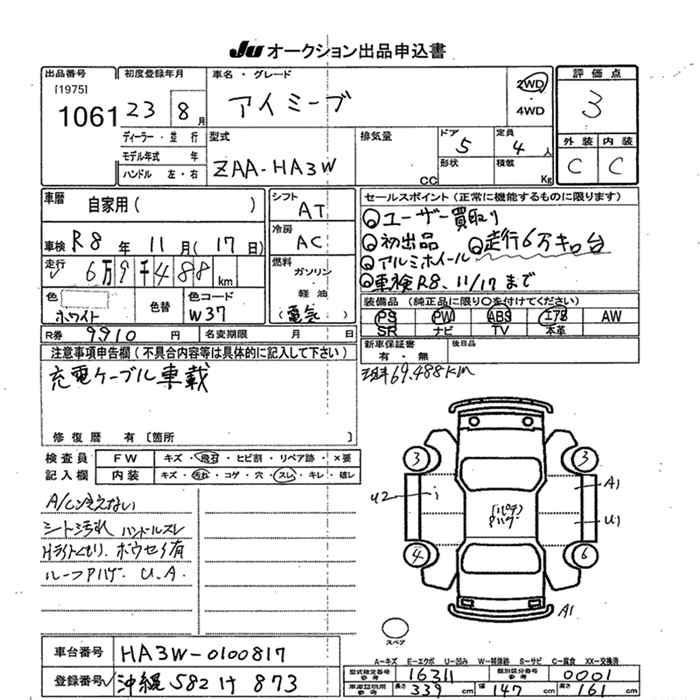 JU オークション出品申込書
出品番号
[1975]
1061
初度登録年月
23 8月
車名・グレード
アイミーブ
2WD
・
4WD
評価点
3
外装 内装
C C
ディーラー・並行
モデル年式 年
ハンドル 左・右
型式
ZAA-HA3W
排気量
CC
ドア
5
定員
4人
形状
積載
Kg
車歴
自家用( )
車検 R8年 11月(17日)
走行
6万9千488km
色
ホワイト
色替
色コード
W37
シフト
AT
冷房
AC
燃料
ガソリン
・
軽油
(電気)
セールスポイント(正常に機能するものに限ります)
ユーザー買取り
初出品 走行6万キロ台
アルミホイール
車検R8、11/17まで
装備品(純正品に限り○を付けてください)
PS PW ABS エアB AW
SR ナビ TV 本革
R券 9910円 名変期限 月 日
新車保証書
有・無
後日品
注意事項申告欄(不具合内容等は具体的に記入して下さい)
充電ケーブル車載
69.488km
修復歴 有 〔箇所 〕
検査員
記入欄
FW キズ・飛石・ヒビ割・リペア跡・×要
内装 キズ・汚れ・コゲ・穴・スレ・キレ・破レ
A/C冷えない
シート汚れ ハンドルスレ
Hライトくもり、ボウセイ有
ルーフPハゲ、U.A.
3 3
A1
U2 i
U1
Pハゲ
4 6
A1
スペア
車台番号 HA3W-0100817
登録番号 沖縄 582 け 873
A-キズ E-エクボ U-凹み W-補修跡 S-サビ C-腐食 XX-交換済
型式指定番号
参考
16311
類別区分番号
参考
0001
車庫証明用
参考
長さ 339cm 幅 147cm 高さ 161cm